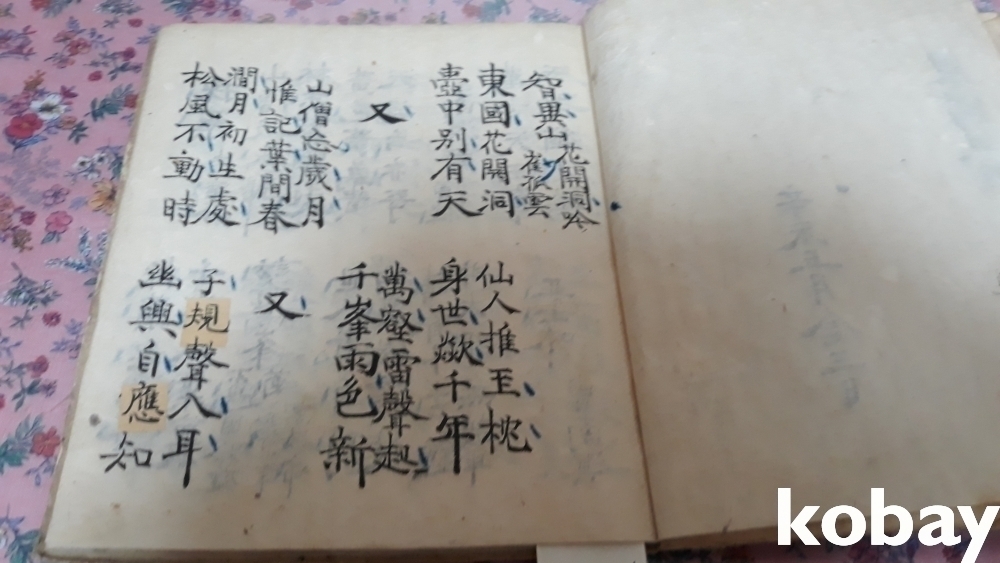 智異山花開洞吟
崔孤雲
東國花開洞
壺中别有天
仙人推玉枕
身世欻千年
又
萬壑雷聲起
千峯雨色新
山僧忘歲月
惟記葉間春
又
澗月初生處
松風不動時
子規聲入耳
幽興自應知
kobay